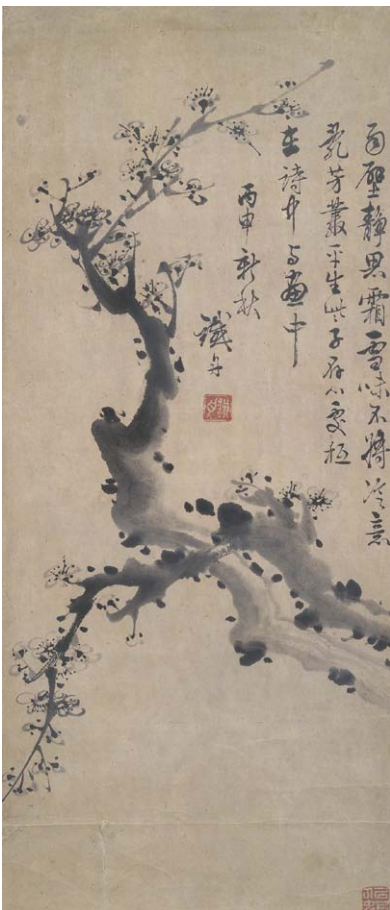 面壁静思霜雪味不將冷意
亂芳叢平生些子存心處
在詩中与畫中
丙申新秋
鐵舟